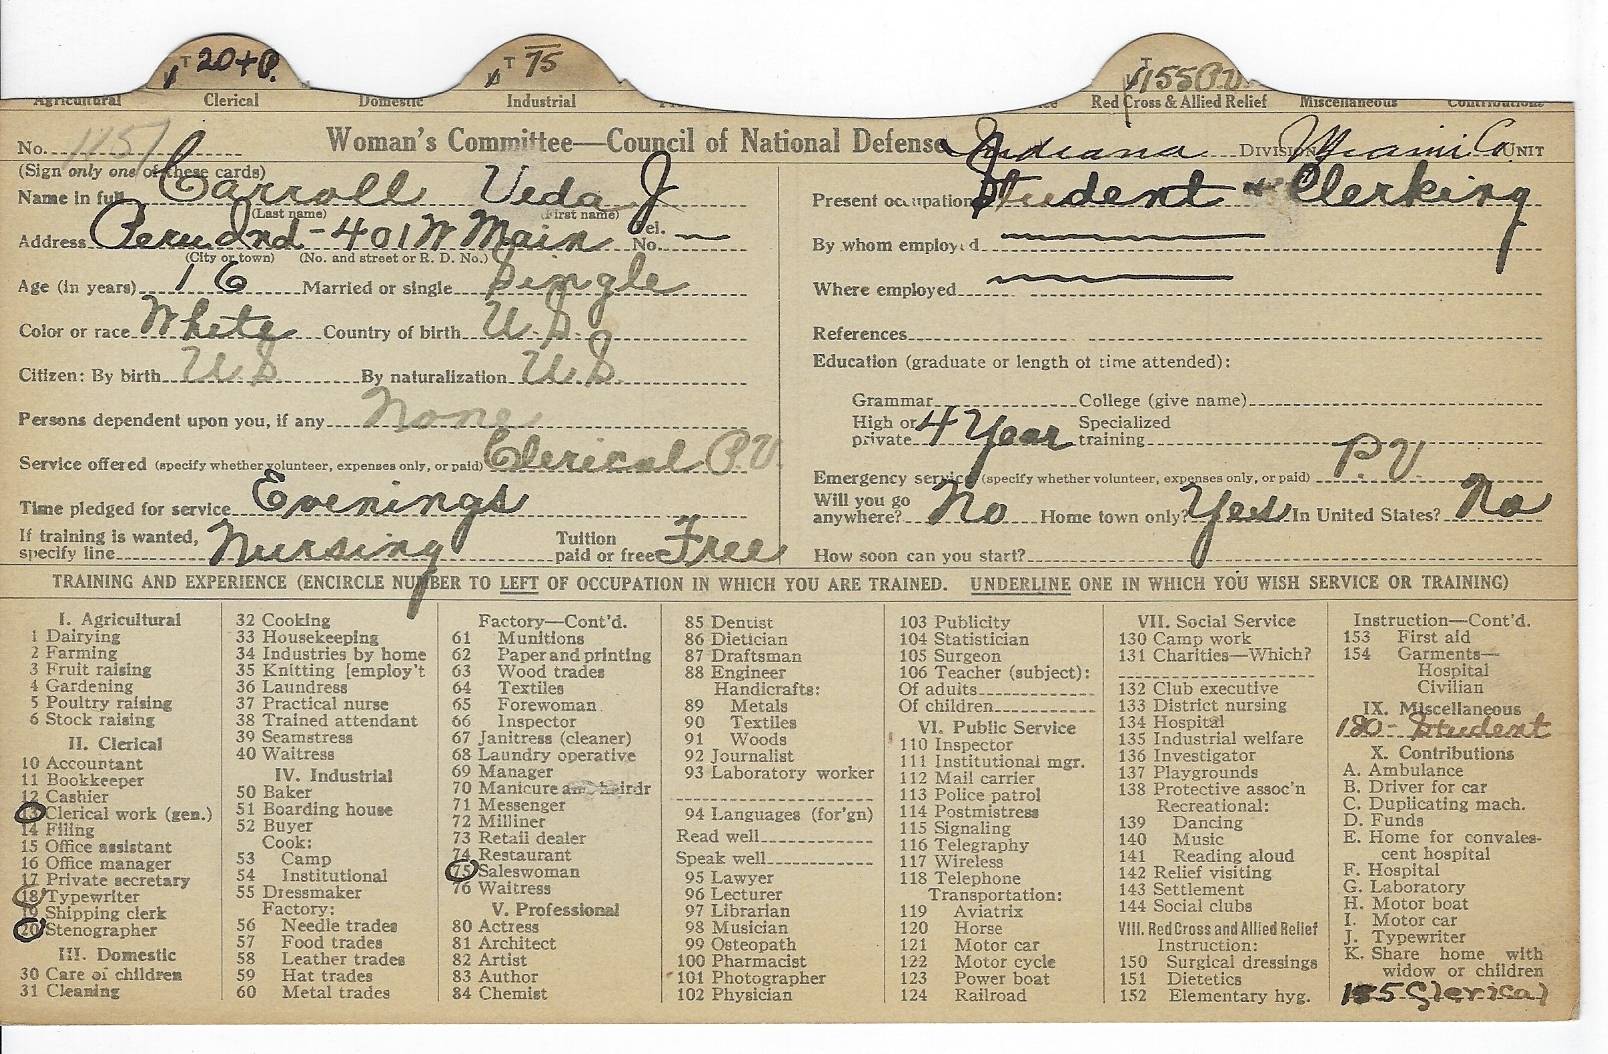 T 20+P.
T 75
T 155 P.V.
Agricultural Clerical Domestic Industrial Red Cross & Allied Relief Miscellaneous Contributions
No. 1151 Woman's Committee—Council of National Defense Indiana DIVISION Miami Co UNIT
(Sign only one of these cards)
Name in full Carroll Veda J
(Last name) (First name)
Address Peru Ind - 401 W Main Tel. No. —
(City or town) (No. and street or R. D. No.)
Age (in years) 16 Married or single Single
Color or race White Country of birth U.S.
Citizen: By birth U S By naturalization U.S.
Persons dependent upon you, if any None
Service offered (specify whether volunteer, expenses only, or paid) Clerical P.V.
Time pledged for service Evenings
If training is wanted, specify line Nursing Tuition paid or free Free
Present occupation Student Clerking
By whom employed
Where employed
References
Education (graduate or length of time attended):
Grammar College (give name)
High or private 4 Year Specialized training
Emergency service (specify whether volunteer, expenses only, or paid) P.V.
Will you go anywhere? No Home town only? Yes In United States? No
How soon can you start?
TRAINING AND EXPERIENCE (ENCIRCLE NUMBER TO LEFT OF OCCUPATION IN WHICH YOU ARE TRAINED. UNDERLINE ONE IN WHICH YOU WISH SERVICE OR TRAINING)
I. Agricultural
1 Dairying
2 Farming
3 Fruit raising
4 Gardening
5 Poultry raising
6 Stock raising
II. Clerical
10 Accountant
11 Bookkeeper
12 Cashier
13 Clerical work (gen.)
14 Filing
15 Office assistant
16 Office manager
17 Private secretary
18 Typewriter
19 Shipping clerk
20 Stenographer
III. Domestic
30 Care of children
31 Cleaning
32 Cooking
33 Housekeeping
34 Industries by home
35 Knitting [employ't
36 Laundress
37 Practical nurse
38 Trained attendant
39 Seamstress
40 Waitress
IV. Industrial
50 Baker
51 Boarding house
52 Buyer
Cook:
53 Camp
54 Institutional
55 Dressmaker
Factory:
56 Needle trades
57 Food trades
58 Leather trades
59 Hat trades
60 Metal trades
Factory—Cont'd.
61 Munitions
62 Paper and printing
63 Wood trades
64 Textiles
65 Forewoman
66 Inspector
67 Janitress (cleaner)
68 Laundry operative
69 Manager
70 Manicure and hairdr
71 Messenger
72 Milliner
73 Retail dealer
74 Restaurant
75 Saleswoman
76 Waitress
V. Professional
80 Actress
81 Architect
82 Artist
83 Author
84 Chemist
85 Dentist
86 Dietician
87 Draftsman
88 Engineer
Handicrafts:
89 Metals
90 Textiles
91 Woods
92 Journalist
93 Laboratory worker
94 Languages (for'gn)
Read well
Speak well
95 Lawyer
96 Lecturer
97 Librarian
98 Musician
99 Osteopath
100 Pharmacist
101 Photographer
102 Physician
103 Publicity
104 Statistician
105 Surgeon
106 Teacher (subject):
Of adults
Of children
VI. Public Service
110 Inspector
111 Institutional mgr.
112 Mail carrier
113 Police patrol
114 Postmistress
115 Signaling
116 Telegraphy
117 Wireless
118 Telephone
Transportation:
119 Aviatrix
120 Horse
121 Motor car
122 Motor cycle
123 Power boat
124 Railroad
VII. Social Service
130 Camp work
131 Charities—Which?
132 Club executive
133 District nursing
134 Hospital
135 Industrial welfare
136 Investigator
137 Playgrounds
138 Protective assoc'n
Recreational:
139 Dancing
140 Music
141 Reading aloud
142 Relief visiting
143 Settlement
144 Social clubs
VIII. Red Cross and Allied Relief
Instruction:
150 Surgical dressings
151 Dietetics
152 Elementary hyg.
Instruction—Cont'd.
153 First aid
154 Garments—
Hospital
Civilian
IX. Miscellaneous
180 - Student
X. Contributions
A. Ambulance
B. Driver for car
C. Duplicating mach.
D. Funds
E. Home for convales-
cent hospital
F. Hospital
G. Laboratory
H. Motor boat
I. Motor car
J. Typewriter
K. Share home with
widow or children
155 Clerical